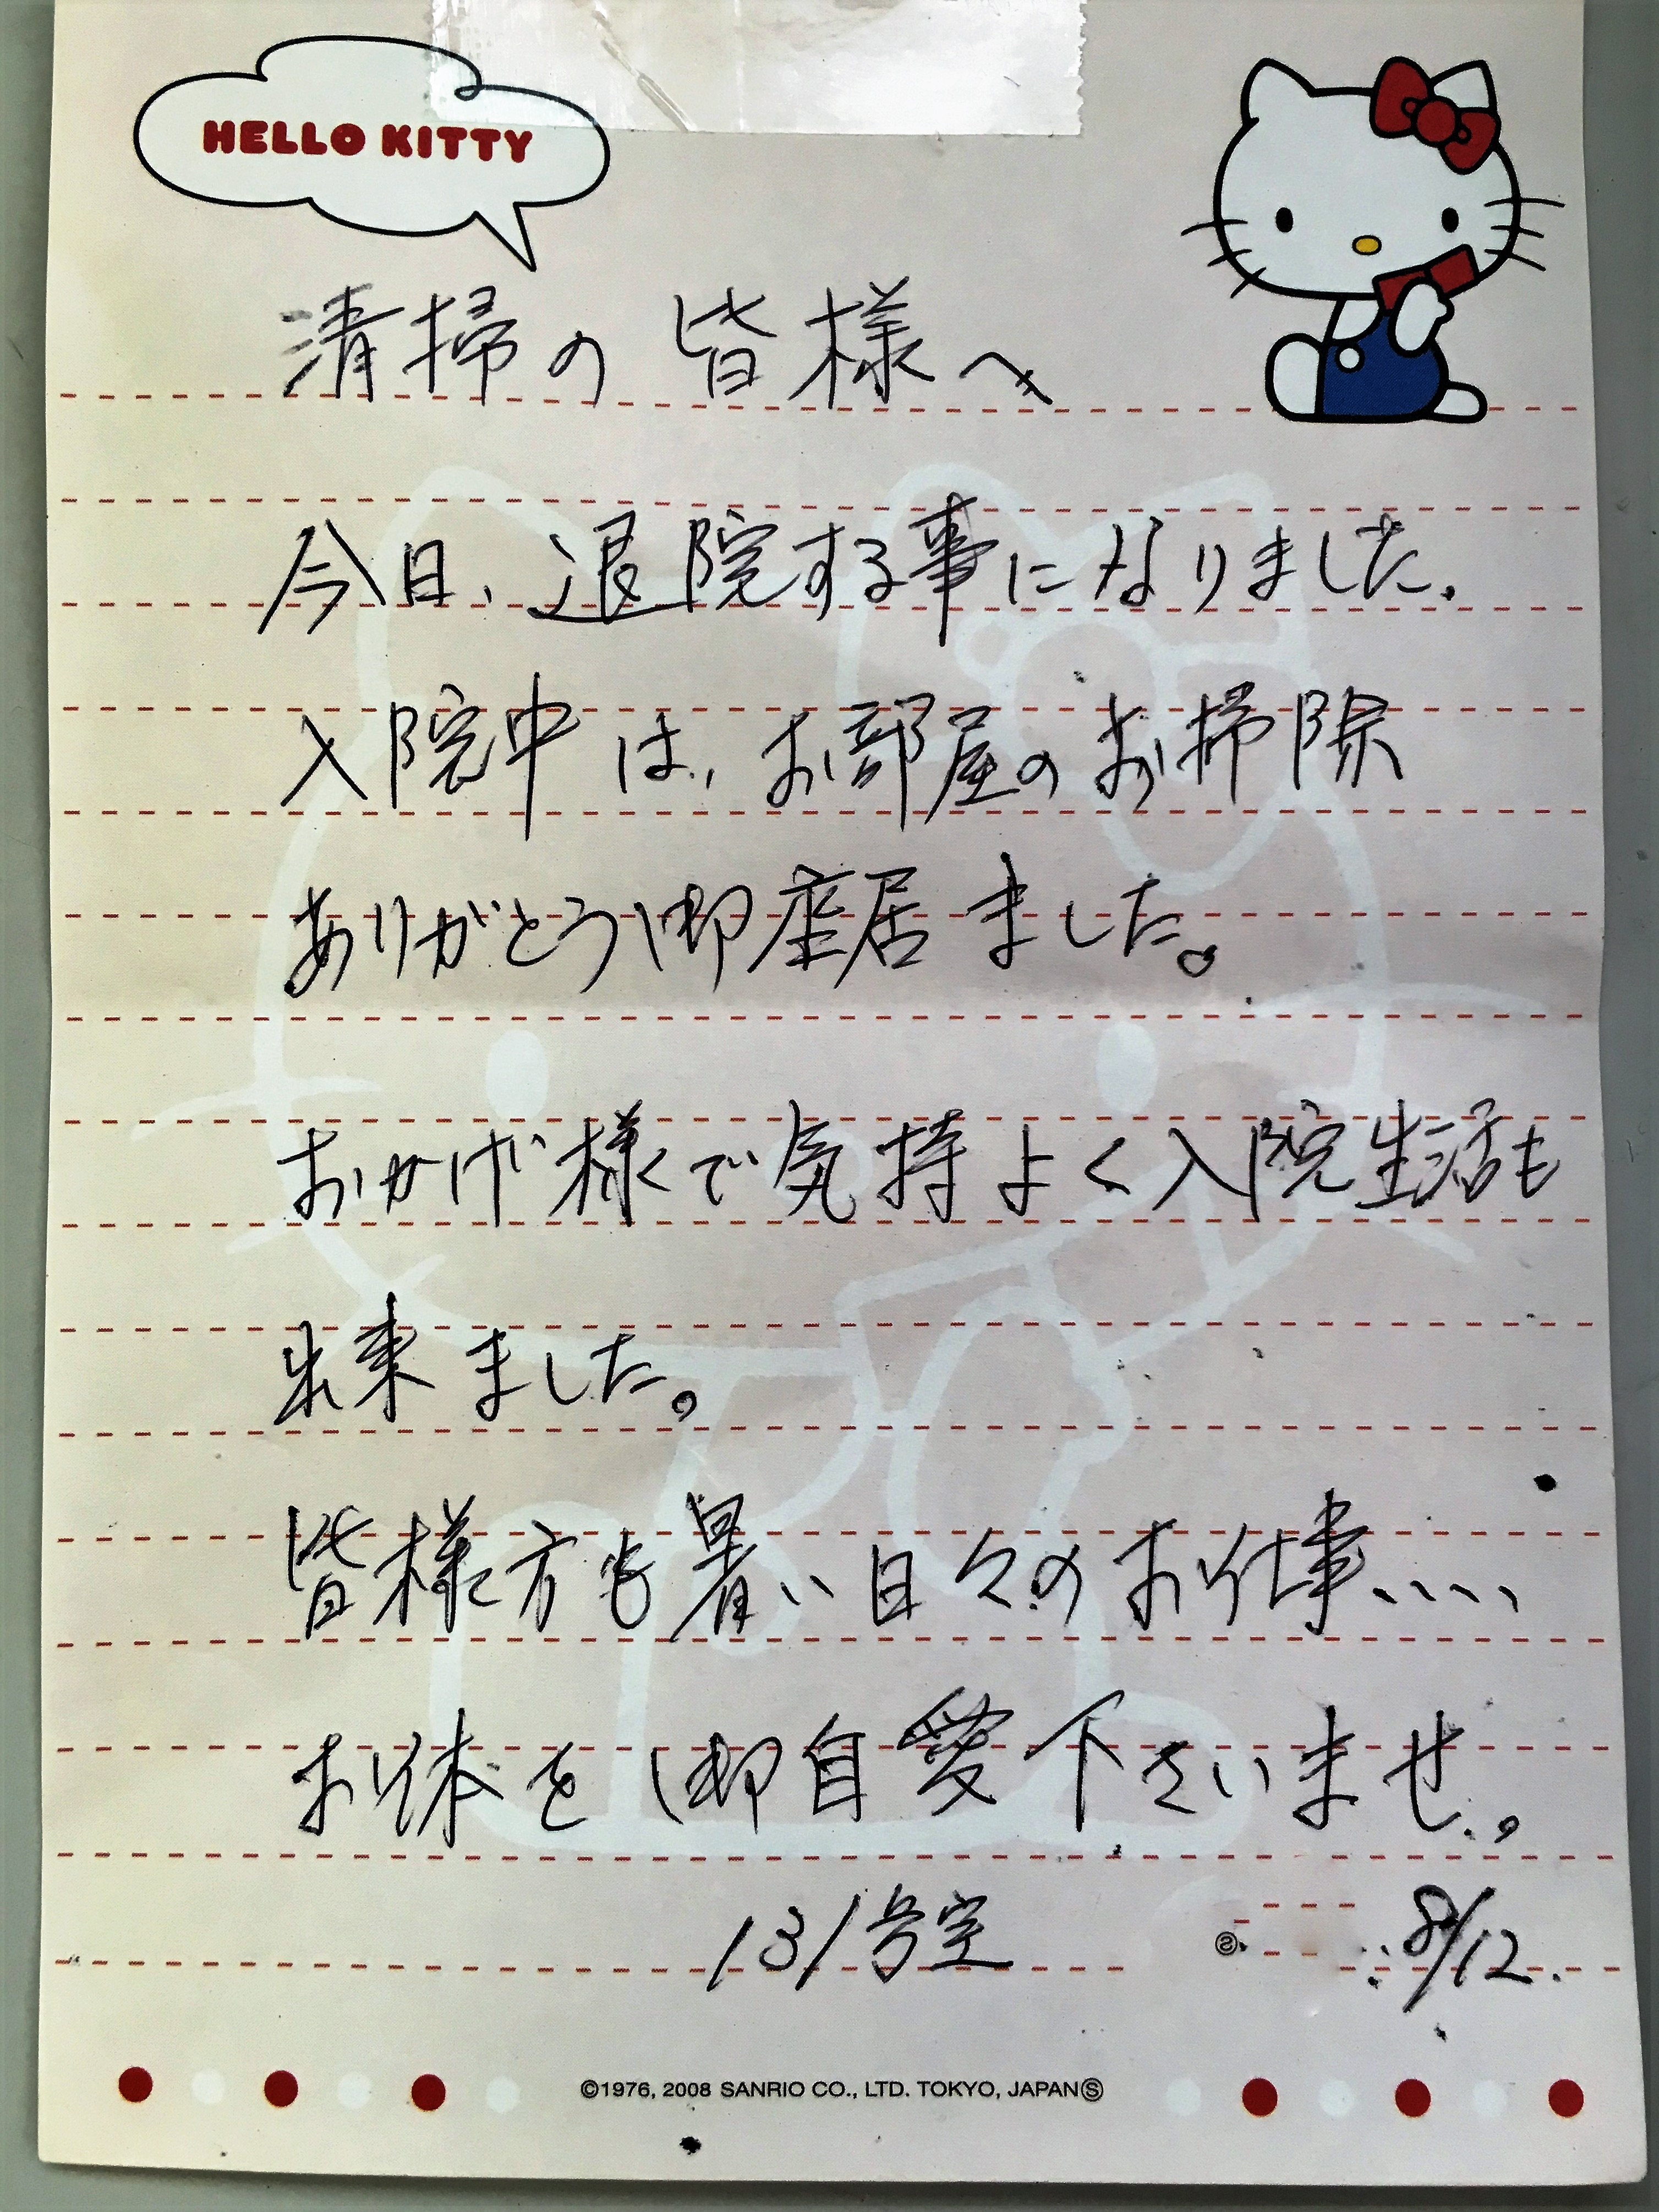 HELLO KITTY
清掃の皆様へ
今日、退院する事になりました.
入院中は、お部屋のお掃除
ありがとう御座居ました。
おかげ様で気持よく入院生活も
出来ました。
皆様方も暑い日々のお仕事、、、、
お体を御自愛下さいませ。
131号室 8/12.
©1976, 2008 SANRIO CO., LTD. TOKYO, JAPANⓈ